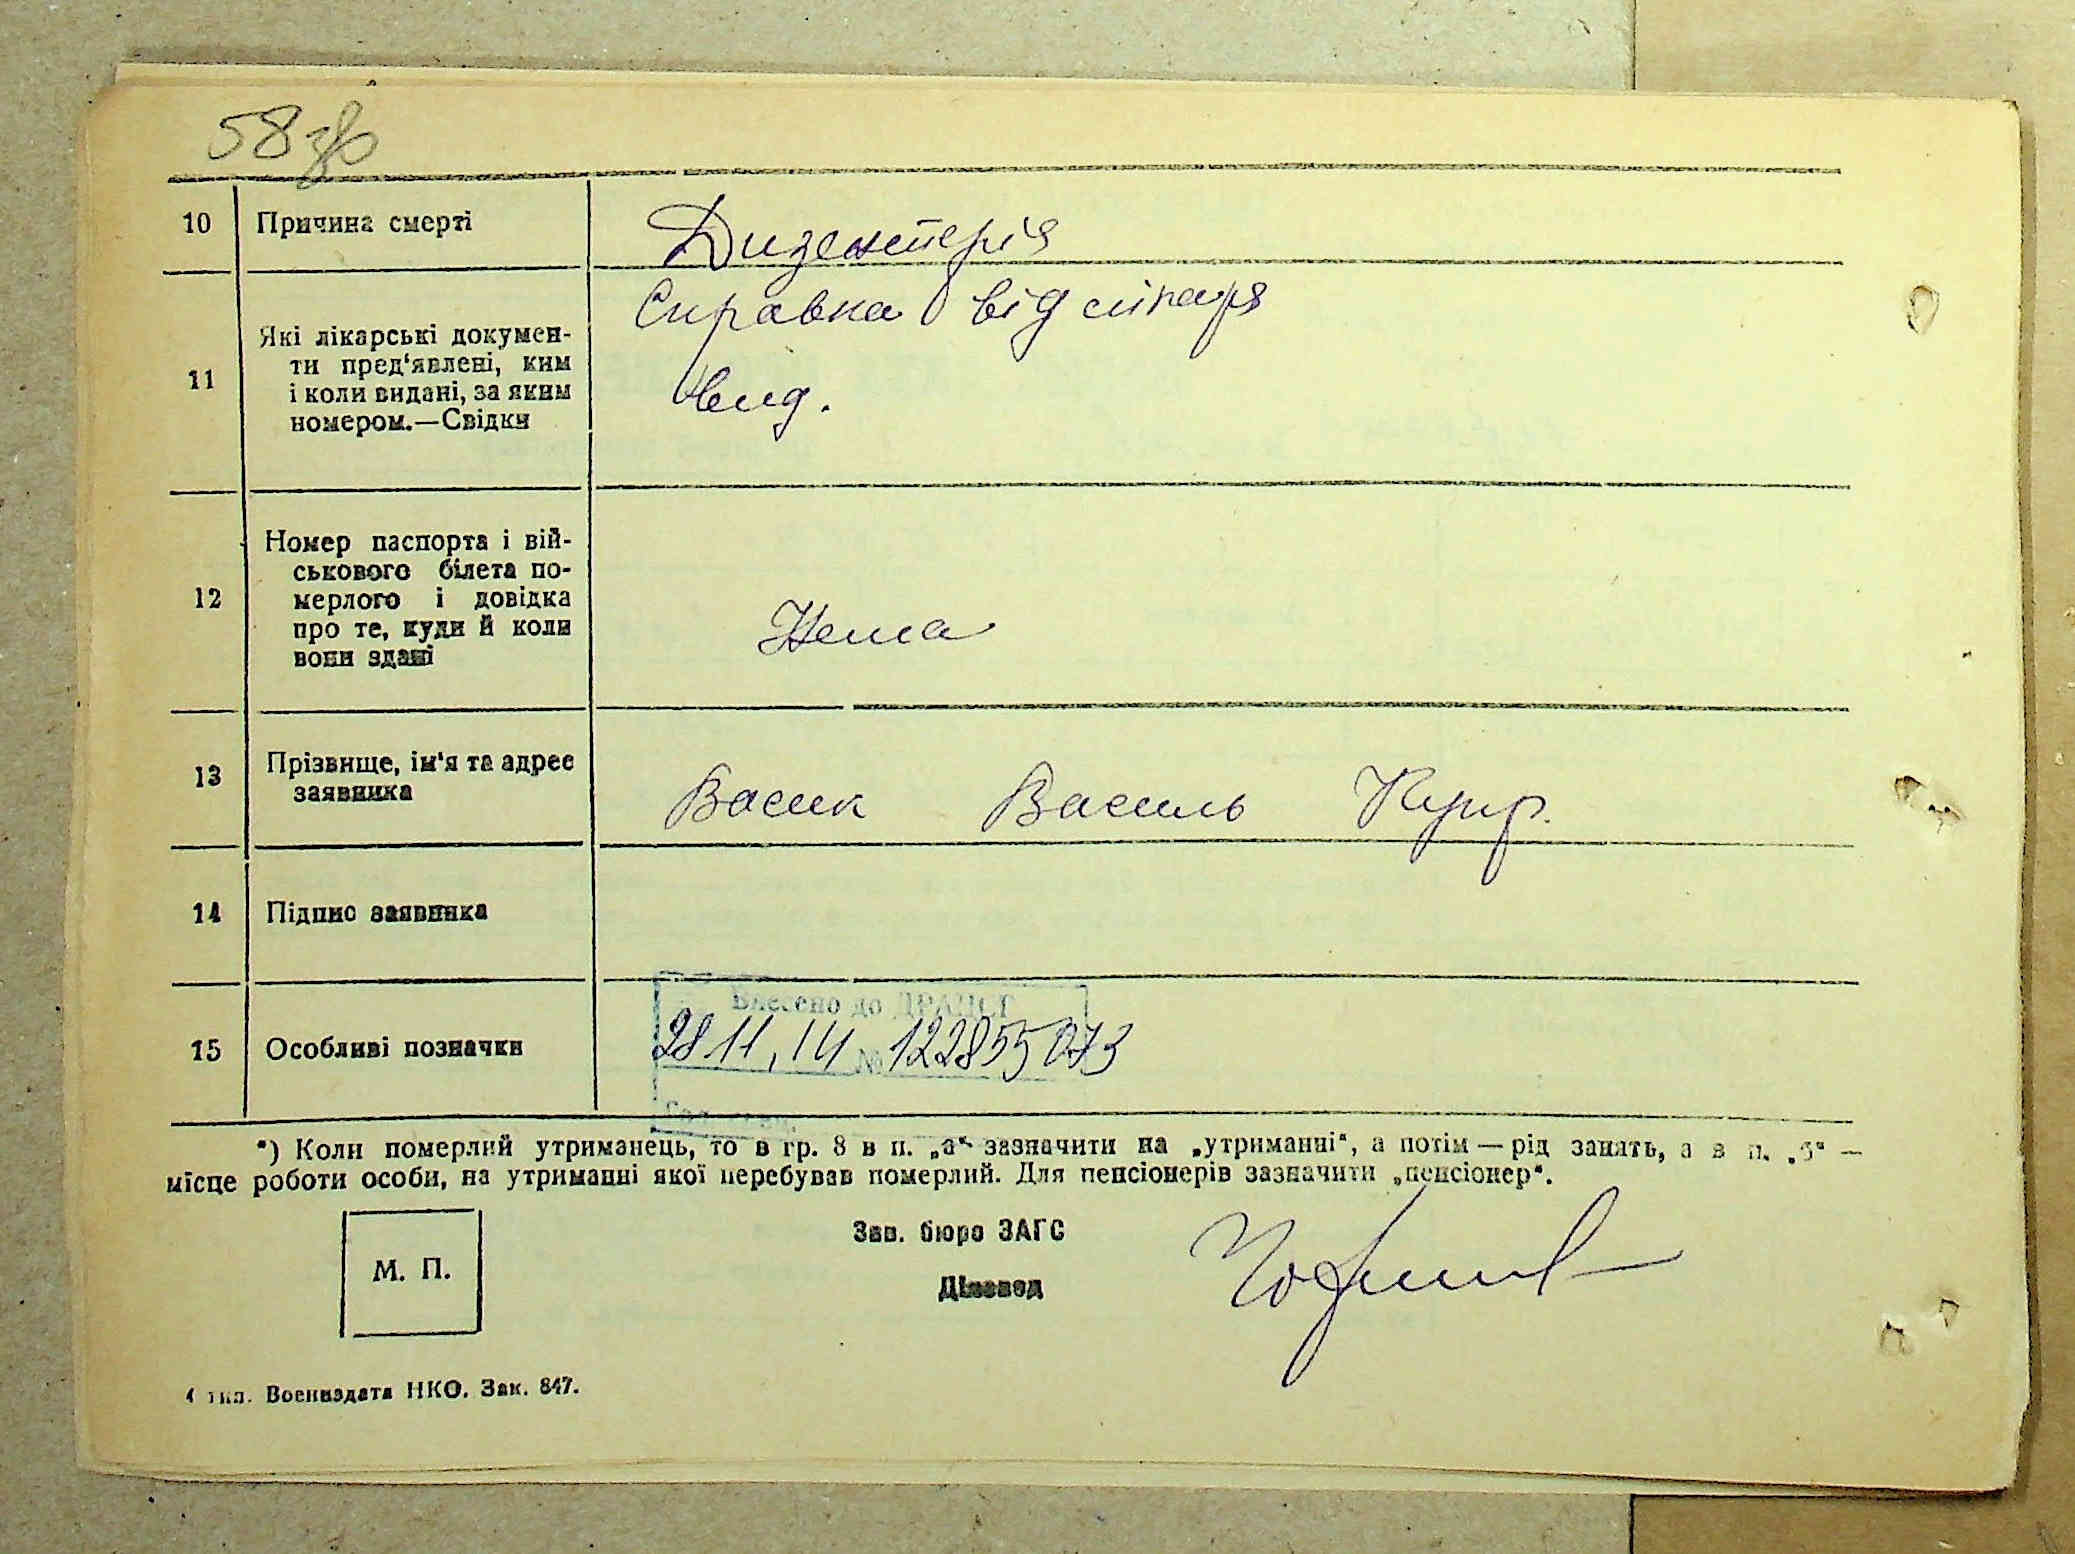 58 зв
10 Причина смерті Дизентерія
11 Які лікарські докумен-
ти пред'явлені, ким
і коли видані, за яким
номером.—Свідки
Справка від
12 Номер паспорта і вій-
ськового білета по-
мерлого і довідка
про те, куди й коли
вони здані
Нема
13 Прізвище, ім'я та адрес
заявника
Васик Василь
14 Підпис заявника
15 Особливі позначки
Внесено до ДРАЦСГ
28 11, 14 № 122855073
*) Коли померлий утриманець, то в гр. 8 в п. „а“ зазначити на „утриманні“, а потім — рід занять, а в п. „б“ —
місце роботи особи, на утриманні якої перебував померлий. Для пенсіонерів зазначити „пенсіонер“.
М. П.
Зав. бюро ЗАГС
Діловод
4 тип. Воениздата НКО. Зак. 847.